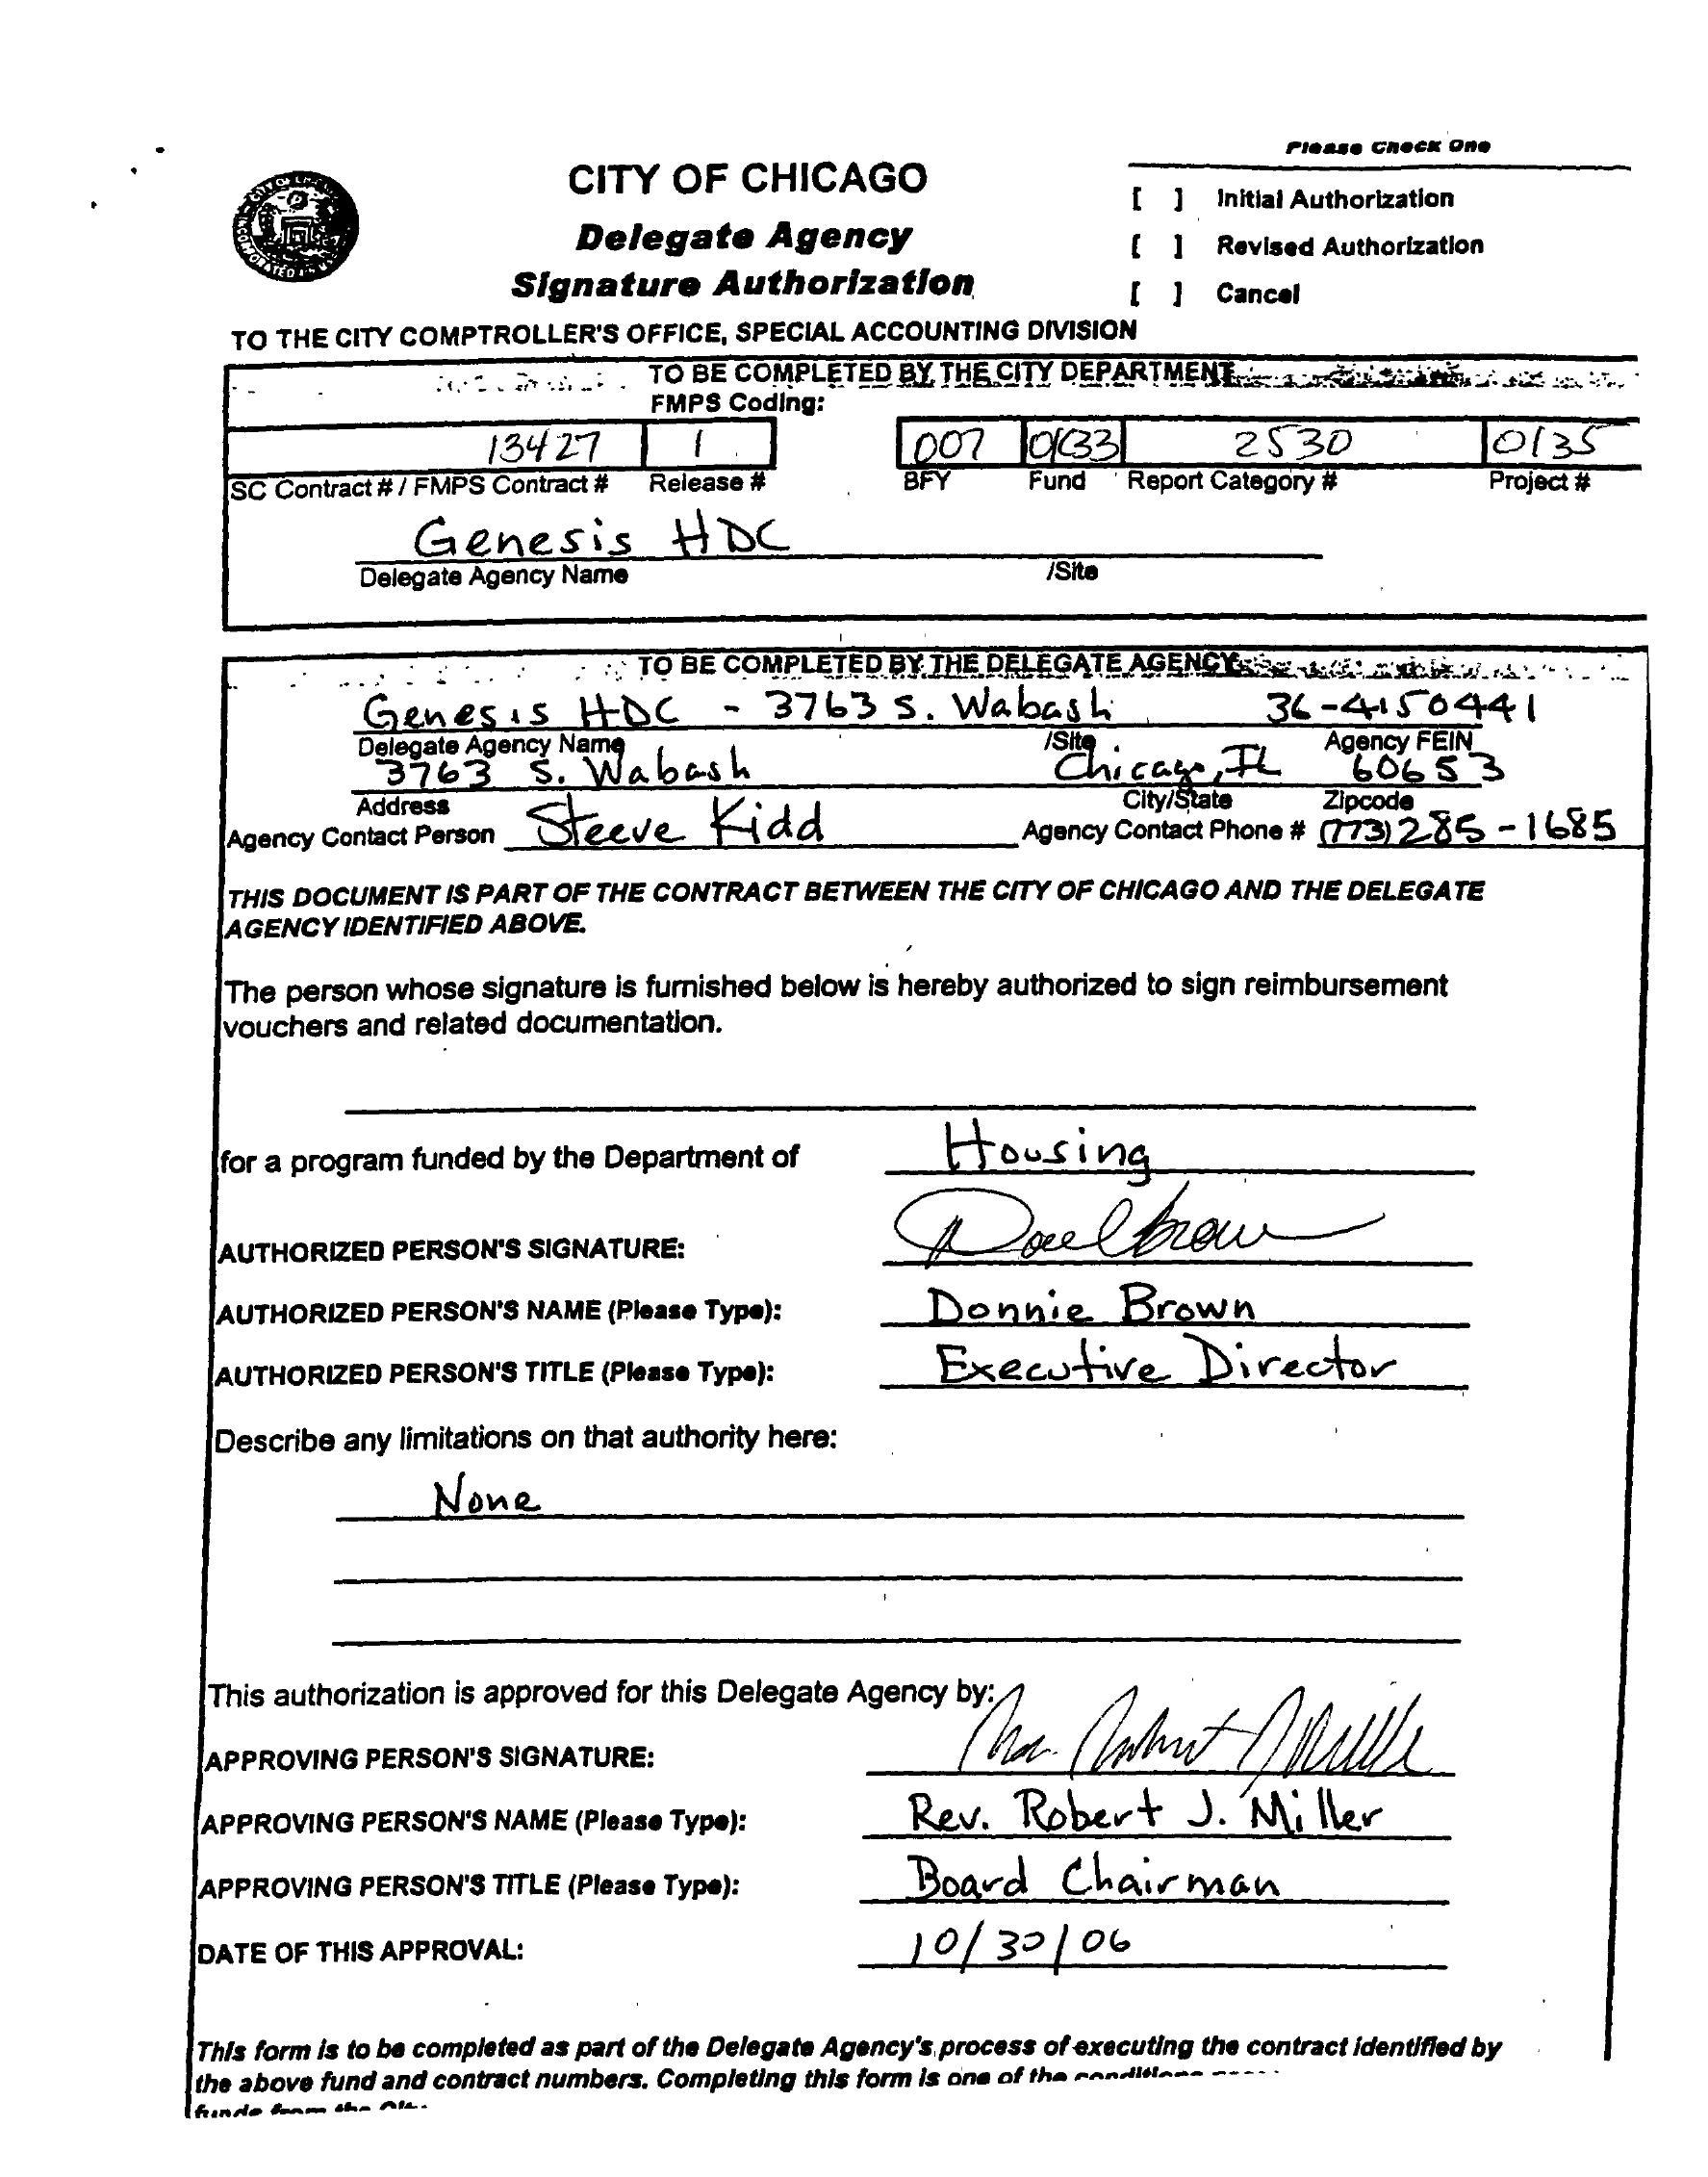 Please Check One
CITY OF CHICAGO
[ ] Initial Authorization
Delegate Agency
[ ] Revised Authorization
Signature Authorization
[ ] Cancel
TO THE CITY COMPTROLLER'S OFFICE, SPECIAL ACCOUNTING DIVISION
TO BE COMPLETED BY THE CITY DEPARTMENT
FMPS Coding:
13427 1 007 0K33 2530 0135
SC Contract # / FMPS Contract # Release # BFY Fund Report Category # Project #
Genesis HDC
Delegate Agency Name /Site
TO BE COMPLETED BY THE DELEGATE AGENCY
Genesis HDC - 3763 S. Wabash 36-4150441
Delegate Agency Name /Site Agency FEIN
3763 S. Wabash Chicago, IL 60653
Address City/State Zipcode
Agency Contact Person Steeve Kidd Agency Contact Phone # (773) 285-1685
THIS DOCUMENT IS PART OF THE CONTRACT BETWEEN THE CITY OF CHICAGO AND THE DELEGATE
AGENCY IDENTIFIED ABOVE.
The person whose signature is furnished below is hereby authorized to sign reimbursement
vouchers and related documentation.
for a program funded by the Department of Housing
AUTHORIZED PERSON'S SIGNATURE:
AUTHORIZED PERSON'S NAME (Please Type): Donnie Brown
AUTHORIZED PERSON'S TITLE (Please Type): Executive Director
Describe any limitations on that authority here:
None
This authorization is approved for this Delegate Agency by:
APPROVING PERSON'S SIGNATURE:
APPROVING PERSON'S NAME (Please Type): Rev. Robert J. Miller
APPROVING PERSON'S TITLE (Please Type): Board Chairman
DATE OF THIS APPROVAL: 10/30/06
This form is to be completed as part of the Delegate Agency's process of executing the contract identified by
the above fund and contract numbers. Completing this form is one of the conditions
funds from the City